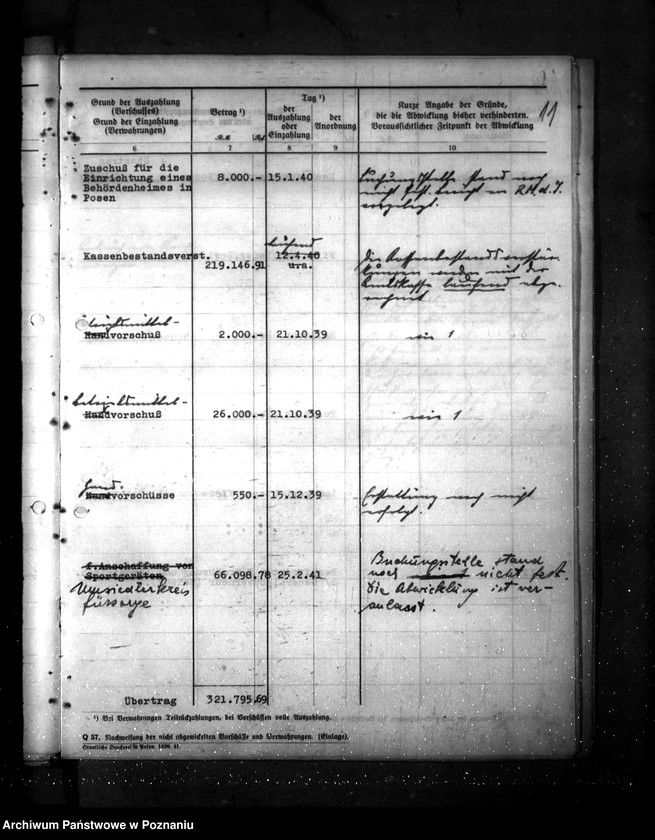 11
Grund der Auszahlung
(Vorschusses)
Grund der Einzahlung
(Verwahrungen)
Betrag ¹)
RM Rpf
Tag ¹)
der
Auszahlung
oder
Einzahlung
der
Anordnung
Kurze Angabe der Gründe,
die die Abwicklung bisher verhinderten.
Voraussichtlicher Zeitpunkt der Abwicklung
6 7 8 9 10
Zuschuß für die
Einrichtung eines 8.000.- 15.1.40
Behördenheimes in
Posen
Buchungsstelle stand noch
nicht fest. Bericht an R.M.d.I.
vorgelegt.
Kassenbestandsverst.
219.146.91
laufend
12.4.40
u.a.
Die Kassenbestandsverstär-
kungen werden mit der
Amtskasse laufend abge-
rechnet
Handvorschuß 2.000.- 21.10.39 wie 1
Handvorschuß 26.000.- 21.10.39 wie 1
Hand-
Handvorschüsse 550.- 15.12.39
Erstattung noch nicht
erfolgt.
f.Anschaffung von
Sportgeräten 66.098.78 25.2.41
Umsiedlerkreis
fürsorge
Buchungsstelle stand
noch nicht fest.
Die Abwicklung ist ver-
anlasst.
Übertrag 321.795.69
¹) Bei Verwahrungen Teilrückzahlungen, bei Vorschüssen volle Auszahlung.
Q 57. Nachweisung der nicht abgewickelten Vorschüsse und Verwahrungen. (Einlage).
Ostdeutsche Druckerei in Posen. 1498. 41.
Archiwum Państwowe w Poznaniu